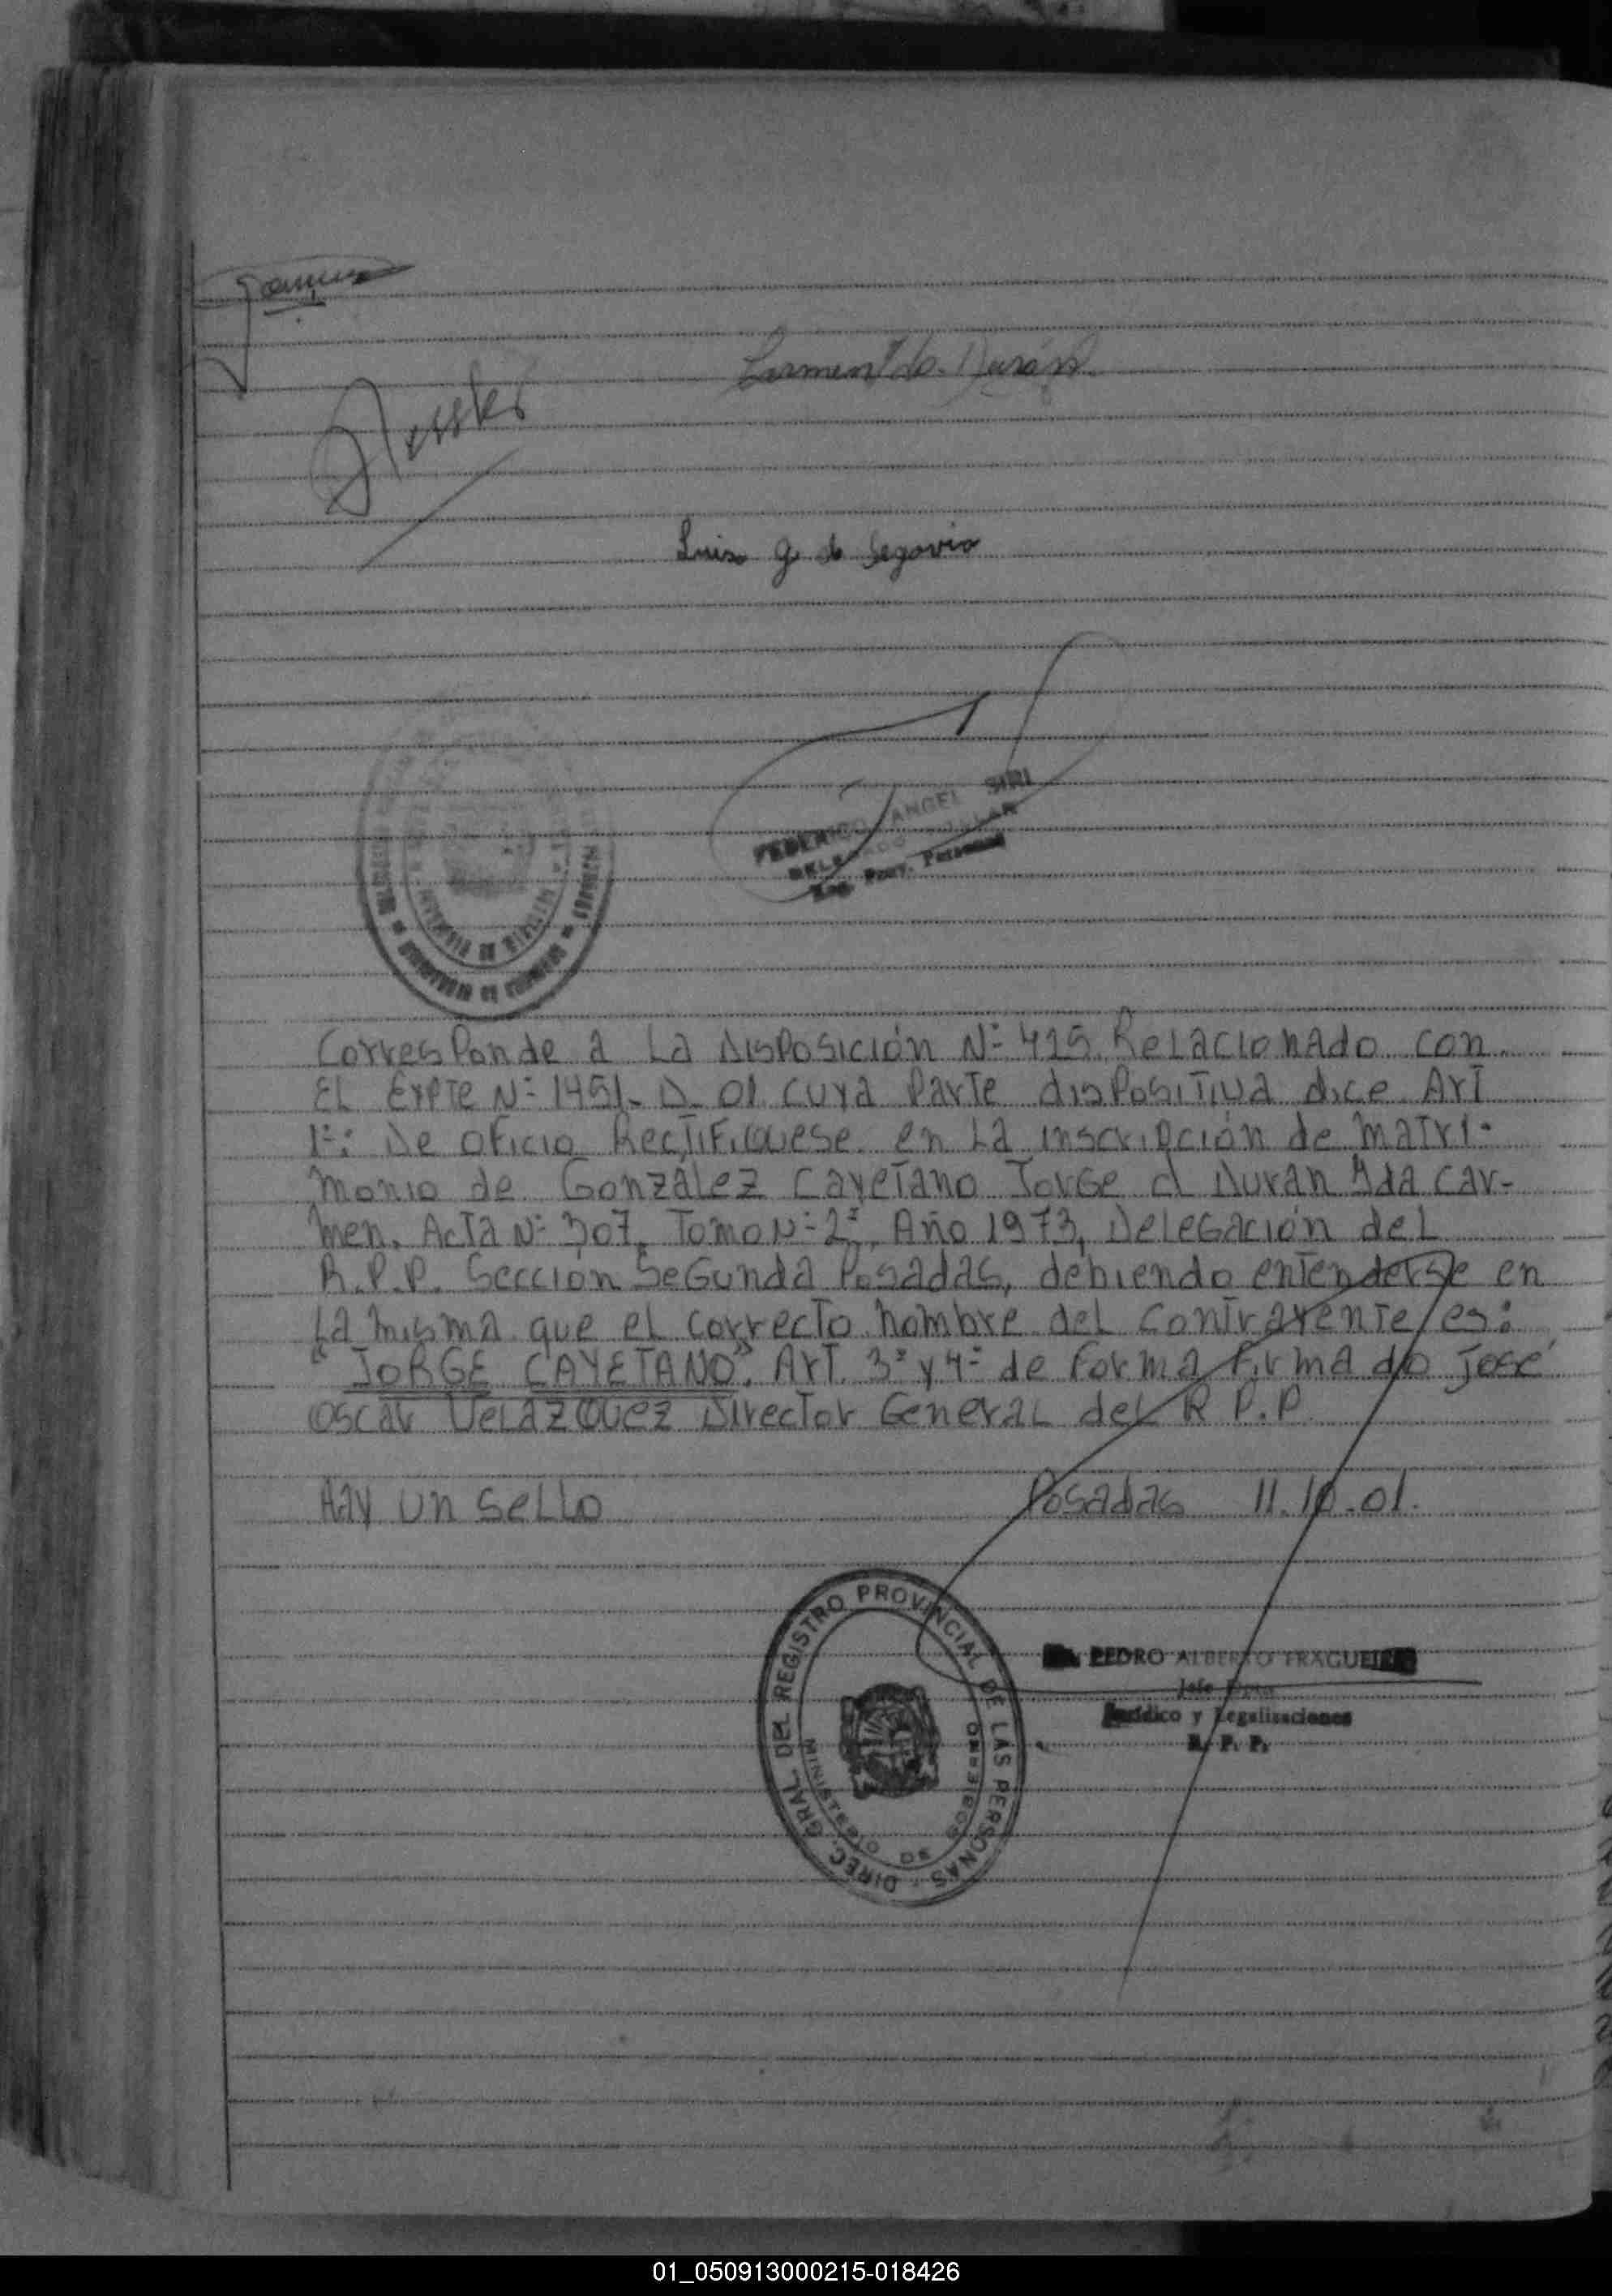 Carmen Duran
Luisa G de Segovia
FEDERICO ANGEL SIRI
DELEGADO TITULAR
Reg. Prov. Personas
PROVINCIA DE MISIONES
Corresponde a La Disposición Nº 425. Relacionado con
El Expte Nº 1451-D-01 cuya Parte dispositiva dice Art
1º: De oficio Rectifiquese en La inscripción de matri-
monio de Gonzalez Cayetano Jorge c/ Duran Ada Car-
men. Acta Nº 307, Tomo Nº 2º, Año 1973, Delegación del
R.P.P. Sección Segunda Posadas, debiendo entenderse en
La misma que el correcto nombre del contrayente es:
"JORGE CAYETANO". Art. 3º y 4º de forma firmado José
Oscar Velazquez Director General del R P.P.
Hay un sello Posadas 11.10.01.
DIREC. GRAL. DEL REGISTRO PROVINCIAL DE LAS PERSONAS
MINISTERIO DE GOBIERNO
PEDRO ALBERTO
Jefe Dpto.
Jurídico y Legalizaciones
R. P. P.
01_050913000215-018426